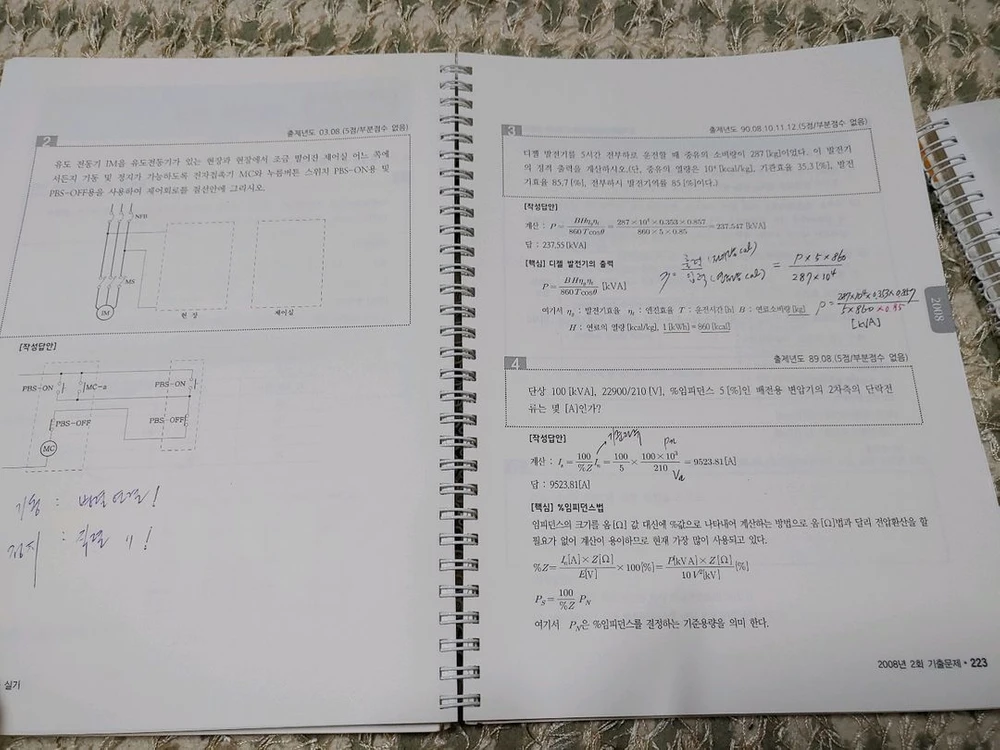 2
출제년도 03.08 (5점/부분점수 없음)
유도 전동기 IM을 유도전동기가 있는 현장과 현장에서 조금 떨어진 제어실 어느 쪽에
서든지 기동 및 정지가 가능하도록 전자접촉기 MC와 누름버튼 스위치 PBS-ON용 및
PBS-OFF용을 사용하여 제어회로를 점선안에 그리시오.
NFB
MS
IM
현 장
제어실
[작성답안]
PBS-ON
MC-a
PBS-ON
PBS-OFF
PBS-OFF
MC
기동 : 병렬연결!
정지 : 직렬 〃!
실기
3
출제년도 90.08.10.11.12 (5점/부분점수 없음)
디젤 발전기를 5시간 전부하로 운전할 때 중유의 소비량이 287[kg]이었다. 이 발전기
의 정격 출력을 계산하시오.(단, 중유의 열량은 10⁴[kcal/kg], 기관효율 35.3[%], 발전
기효율 85.7[%], 전부하시 발전기역률 85[%]이다.)
[작성답안]
계산 : P = BHηgηt / 860Tcosθ = 287×10⁴×0.353×0.857 / 860×5×0.85 = 237.547 [kVA]
답 : 237.55[kVA]
[핵심] 디젤 발전기의 출력
η = 출력 / 입력 = P×5×860 / 287×10⁴
P = BHηgηt / 860Tcosθ [kVA]
P = 287×10⁴×0.353×0.857 / 5×860×0.85
[kVA]
여기서 ηg : 발전기효율 ηt : 엔진효율 T : 운전시간[h] B : 연료소비량[kg]
H : 연료의 열량[kcal/kg], 1[kWh]=860[kcal]
2008
4
출제년도 89.08 (5점/부분점수 없음)
단상 100[kVA], 22900/210[V], %임피던스 5[%]인 배전용 변압기의 2차측의 단락전
류는 몇 [A]인가?
[작성답안]
Pn
계산 : Is = 100/%Z In = 100/5 × 100×10³/210 = 9523.81[A]
답 : 9523.81[A]
[핵심] %임피던스법
임피던스의 크기를 옴[Ω] 값 대신에 %값으로 나타내어 계산하는 방법으로 옴[Ω]법과 달리 전압환산을 할
필요가 없어 계산이 용이하므로 현재 가장 많이 사용되고 있다.
%Z = In[A]×Z[Ω] / E[V] ×100[%] = P[kVA]×Z[Ω] / 10V²[kV] [%]
PS = 100/%Z PN
여기서 PN은 %임피던스를 결정하는 기준용량을 의미 한다.
2008년 2회 기출문제 • 223